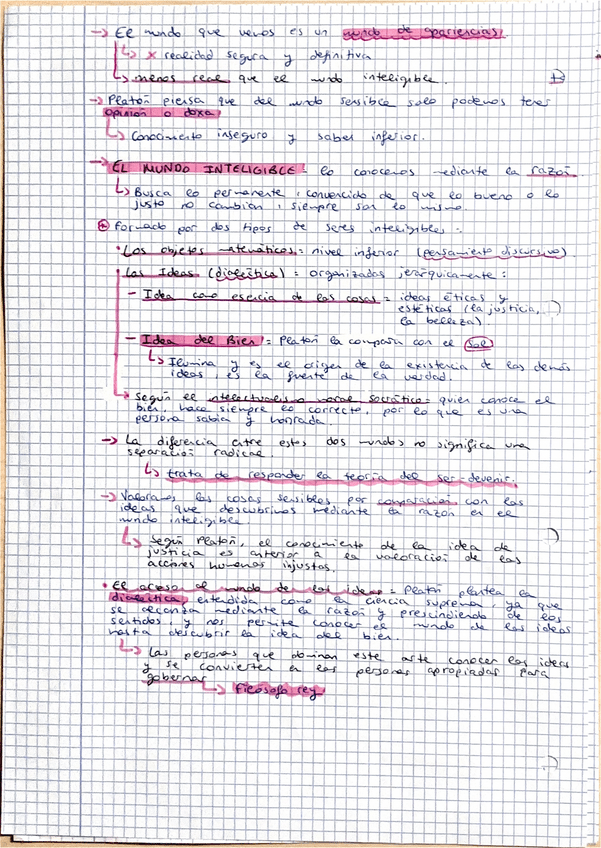 → El mundo que vemos es un mundo de apariencias
↳ × realidad segura y definitiva
↳ menos real que el mundo inteligible.
→ Platón piensa que del mundo sensible solo podemos tener
opinión o doxa
↳ Conocimiento inseguro y saber inferior.
→ EL MUNDO INTELIGIBLE: lo conocemos mediante la razón
↳ Busca lo permanente, convencido de que lo bueno o lo
justo no cambian, siempre son lo mismo.
Formado por dos tipos de seres inteligibles:
• Los objetos matemáticos = nivel inferior (pensamiento discursivo)
• Las Ideas (dialéctica) = organizadas jerárquicamente:
- Idea como esencia de las cosas = ideas éticas y
estéticas (la justicia,
la belleza).
- Idea del Bien = Platón la compara con el sol
↳ Ilumina y es el origen de la existencia de las demás
ideas, es la fuente de la verdad.
↳ Según el intelectualismo moral socrático = quien conoce el
bien, hace siempre lo correcto, por lo que es una
persona sabia y honrada.
→ La diferencia entre estos dos mundos no significa una
separación radical.
↳ trata de responder la teoría del ser-devenir.
→ Valoramos las cosas sensibles por comparación con las
ideas que descubrimos mediante la razón en el
mundo inteligible.
↳ Según Platón, el conocimiento de la idea de
justicia es anterior a la valoración de las
acciones humanas injustas.
• El acceso al mundo de las ideas = Platón plantea la
dialéctica, entendida como la ciencia suprema, ya que
se alcanza mediante la razón y prescindiendo de los
sentidos, y nos permite conocer el mundo de las ideas
hasta descubrir la idea del bien.
↳ Las personas que dominan este arte conocen las ideas
y se convierten en las personas apropiadas para
gobernar
↳ filósofo rey